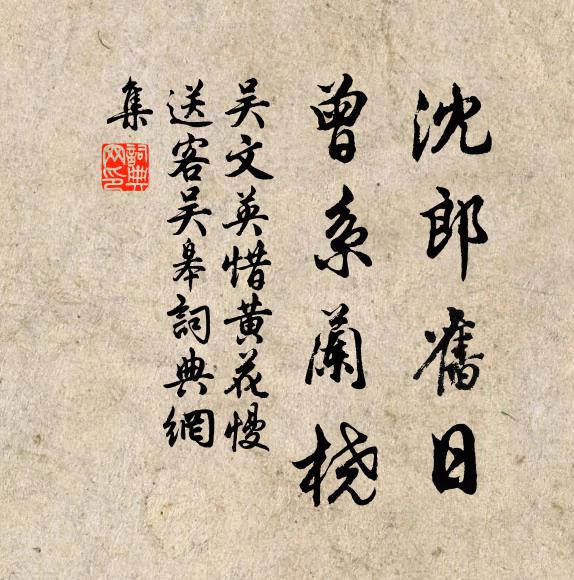 沈郎舊日
曾系蘭桡
吴文英惜黄花慢
送客吴皋詞典網
集
詞典网印